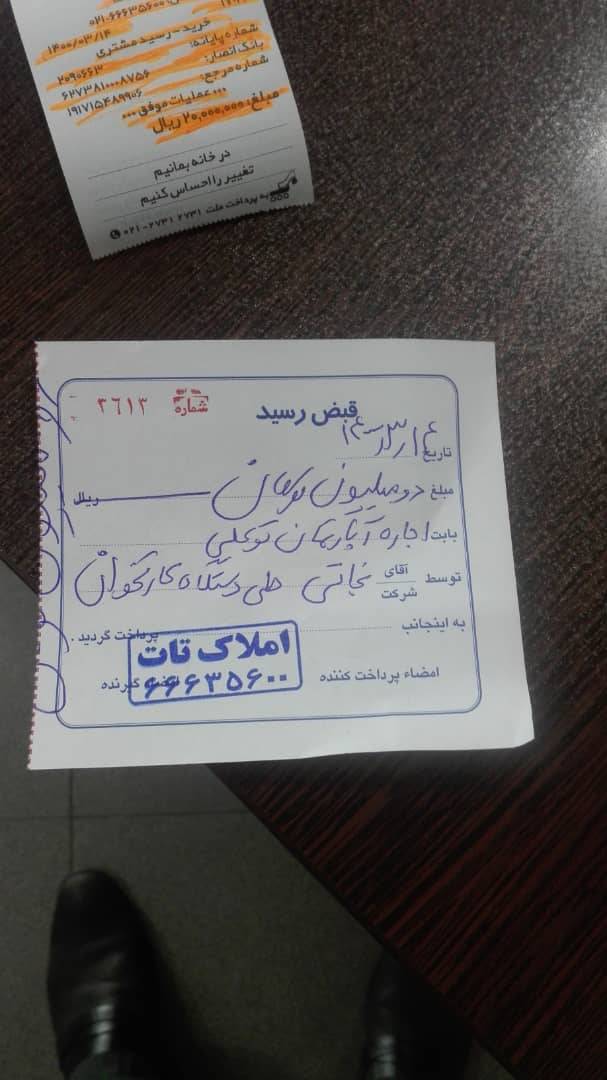 ۰۲۱-۶۶۶۳۵۶۰۰
خرید-رسید مشتری
۱۴۰۰/۰۳/۱۴
شماره پایانه: ۲۰۹۰۶۶۳
بانک انصار: ۶۲۷۳۸۱۰۰۰۸۷۵۶
شماره مرجع: ۱۹۱۷۱۵۴۸۹۹۰۶
... عملیات موفق ...
مبلغ: ۲۰,۰۰۰,۰۰۰ ریال
در خانه بمانیم
تغییر را احساس کنیم
به پرداخت ملت ۲۷۳۱ ۲۷۳۱-۰۲۱
قبض رسید
شماره ۳۶۱۳
تاریخ
مبلغ دو میلیون تومان ریال
بابت اجاره آپارتمان توکلی
توسط آقای شرکت نجاتی طی دستگاه کارتخوان
به اینجانب پرداخت گردید.
امضاء پرداخت کننده گیرنده
املاک تات
۶۶۶۳۵۶۰۰